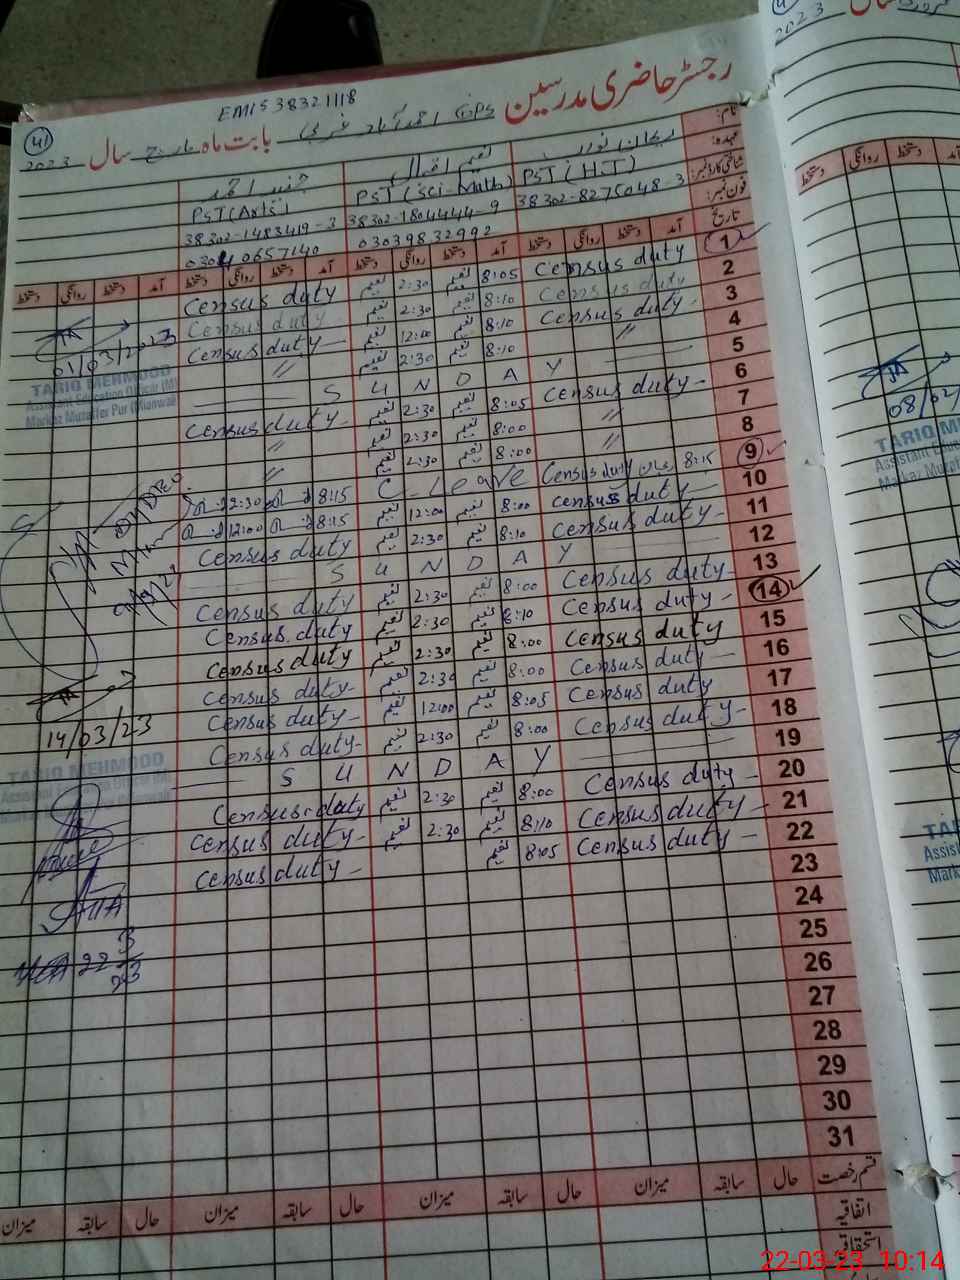 رجسٹر حاضری مدرسین
EMIS 38321118
GPS احمد آباد غربی بابت ماہ مارچ سال 2023
41
نام:
ریحان نور
نعیم اقبال
جنید احمد
عہدہ:
PST (H.T)
PST (Sci-Math)
PST (Arts)
شناختی کارڈ نمبر:
38302-8275048-3
38302-1804444-9
38302-1483419-3
فون نمبر:
03039832992
03040657140
تاریخ آمد دستخط روانگی دستخط آمد دستخط روانگی دستخط آمد دستخط روانگی دستخط آمد دستخط روانگی دستخط
1 Census duty 8:05 نعیم 2:30 نعیم Census duty
2 Census duty 8:10 نعیم 2:30 نعیم Census duty
3 Census duty 8:10 نعیم 12:00 نعیم Census duty
4 〃 8:10 نعیم 2:30 نعیم 〃
5 SUNDAY
6 Census duty 8:05 نعیم 2:30 نعیم Census duty
7 〃 8:00 نعیم 2:30 نعیم 〃
8 〃 8:00 نعیم 2:30 نعیم 〃
9 8:15 ریحان Census duty C-Leave 8:15 2:30
10 Census duty 8:00 نعیم 12:00 نعیم 8:15 12:00
11 Census duty 8:10 نعیم 2:30 نعیم Census duty
12 SUNDAY
13 Census duty 8:00 نعیم 2:30 نعیم Census duty
14 Census duty 8:10 نعیم 2:30 نعیم Census duty
15 Census duty 8:00 نعیم 2:30 نعیم Census duty
16 Census duty 8:00 نعیم 2:30 نعیم Census duty
17 Census duty 8:05 نعیم 12:00 نعیم Census duty
18 Census duty 8:00 نعیم 2:30 نعیم Census duty
19 SUNDAY
20 Census duty 8:00 نعیم 2:30 نعیم Census duty
21 Census duty 8:10 نعیم 2:30 نعیم Census duty
22 Census duty 8:05 نعیم Census duty
23
24
25
26
27
28
29
30
31
01/03/2023
TARIQ MEHMOOD
Assistant Education Officer (M)
Markaz Muzaffer Pur (Mianwali)
14/03/23
TARIQ MEHMOOD
Assistant Education Officer (M)
22
3
23
قسم رخصت حال سابقہ میزان حال سابقہ میزان حال سابقہ میزان حال سابقہ میزان
اتفاقیہ
استحقاقیہ
سال 2023
آمد دستخط روانگی دستخط
08/02/
TARIQ M
Assistant Educa
TAR
Assist
Mark
22-03-23 10:14